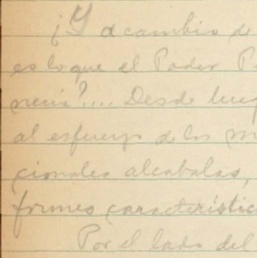 ¿Y a cambio de
es lo que el Poder P
nería?.... Desde lueg
al esfuerzo de los m
cionales alcabalas,
formes característic
Por el lado del